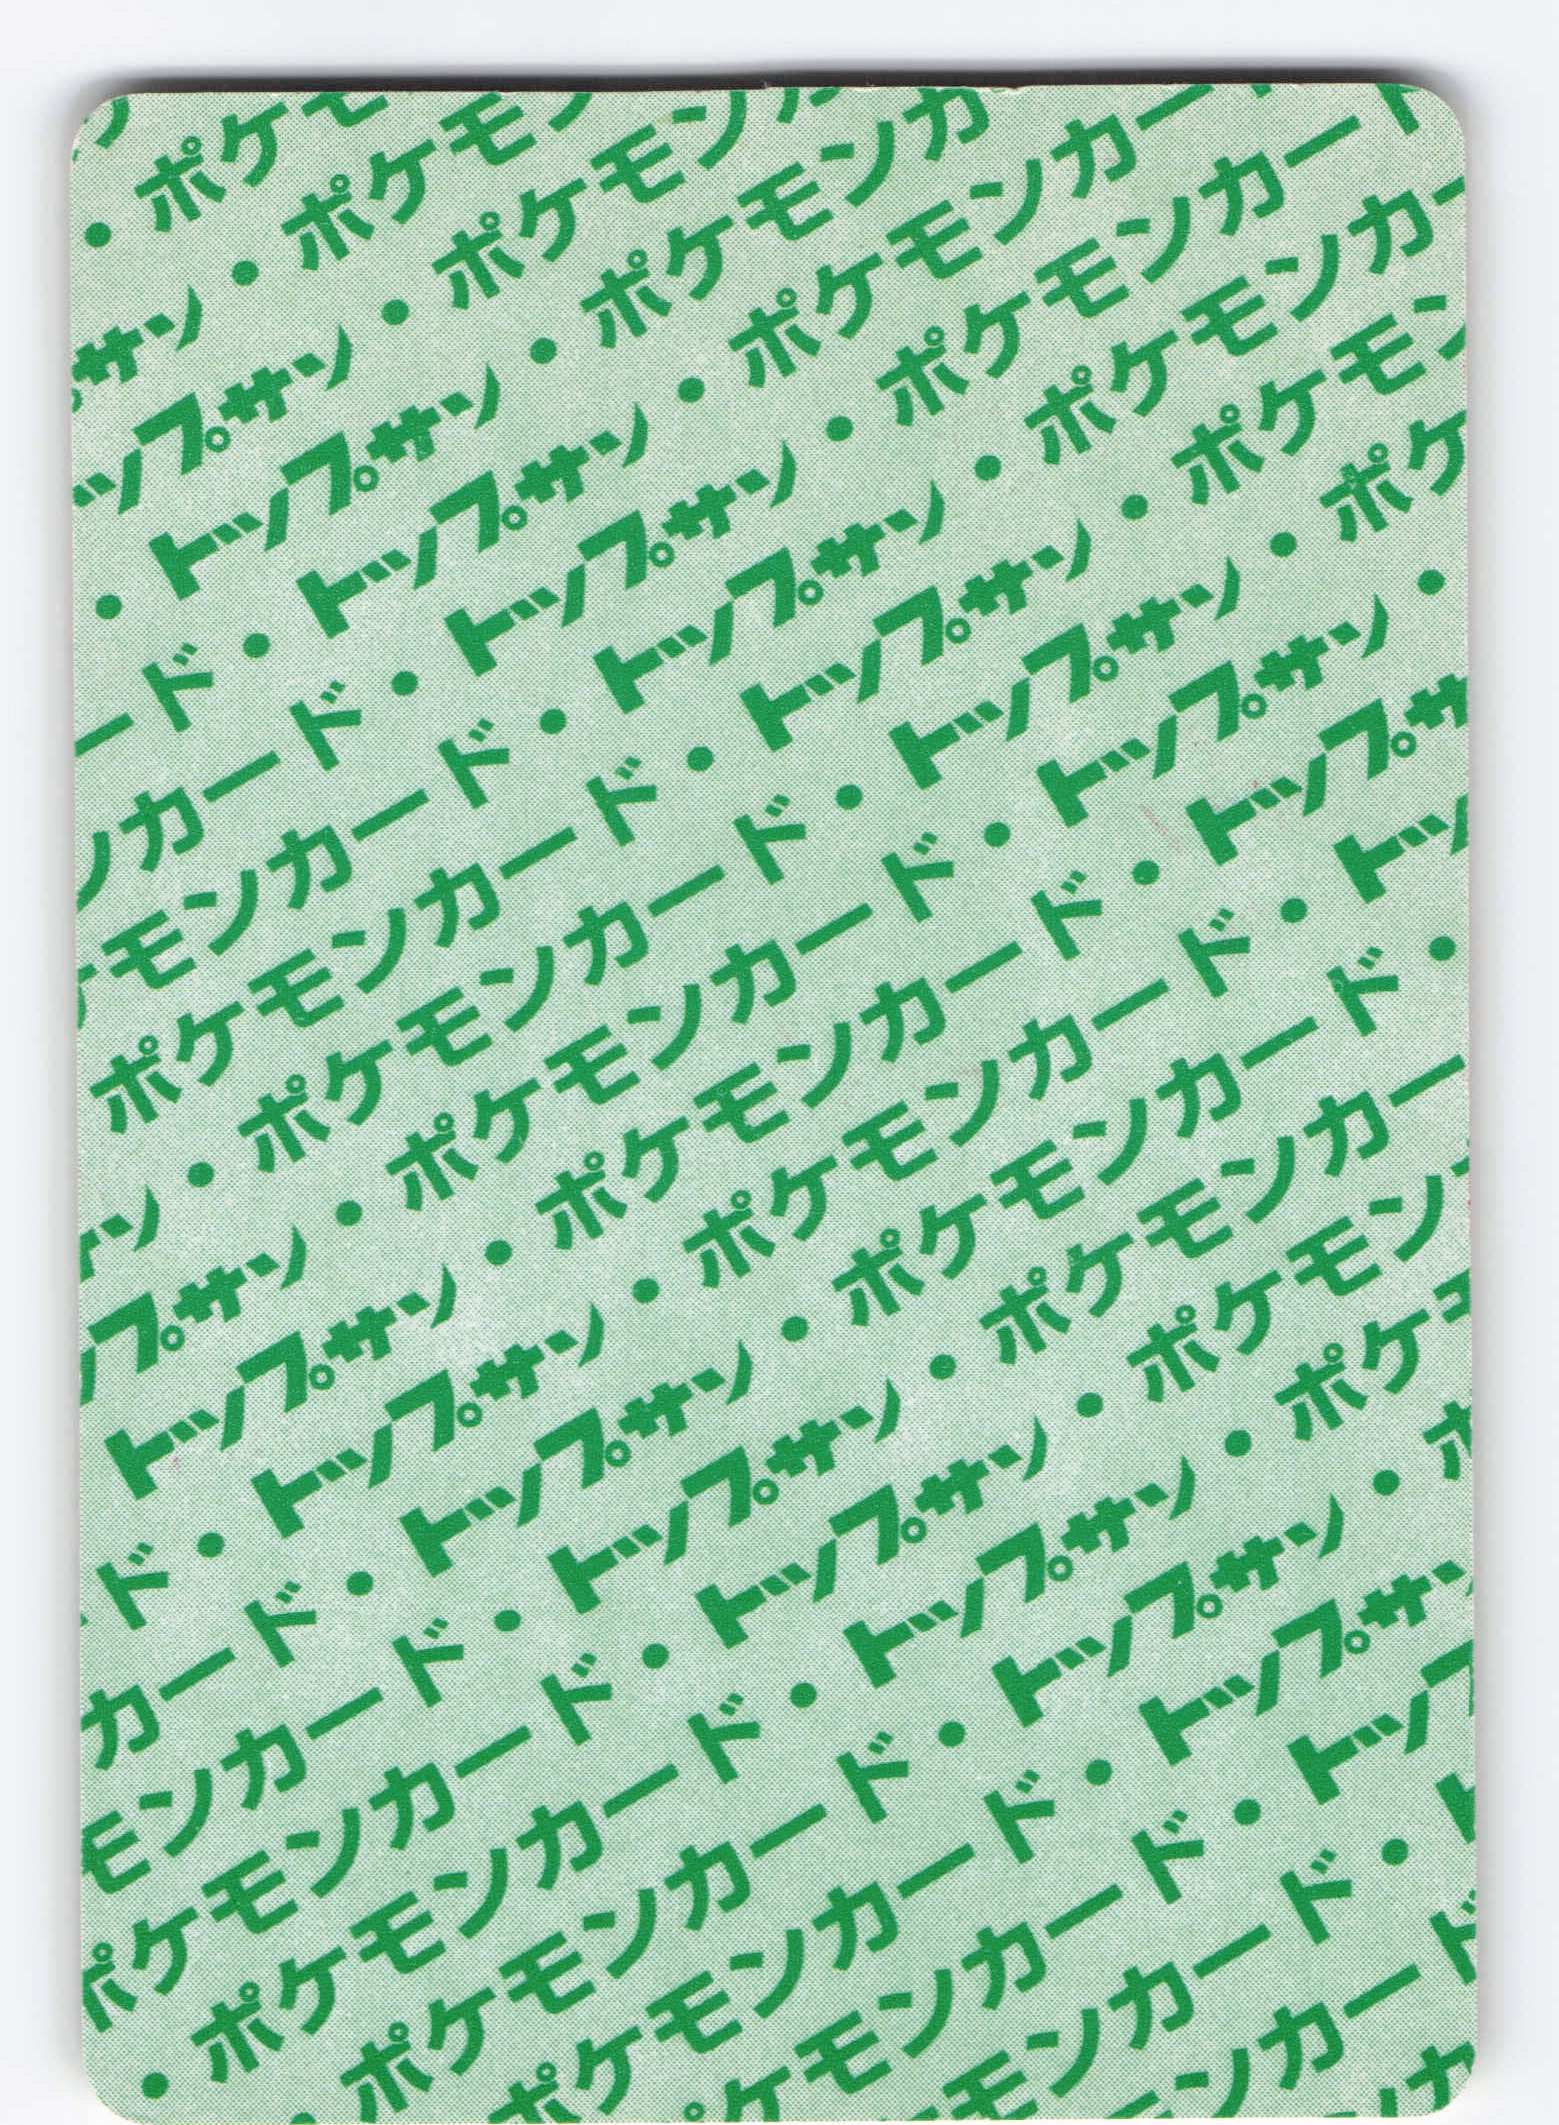 ・ポケモ
サン・ポケモン
ップサン・ポケモンカ
・トップサン・ポケモンカ
ード・トップサン・ポケモンカー
ンカード・トップサン・ポケモンカード
ケモンカード・トップサン・ポケモンカー
ポケモンカード・トップサン・ポケモン
サン・ポケモンカード・トップサン・ポケ
ップサン・ポケモンカード・トップサン・
トップサン・ポケモンカード・トップサ
ド・トップサン・ポケモンカード・トッ
カード・トップサン・ポケモンカード・
モンカード・トップサン・ポケモンカー
ポケモンカード・トップサン・ポケモン
・ポケモンカード・トップサン・ポケモ
ポケモンカード・トップサン・ポ
ポケモンカード・トップサン
ケモンカード・トップ
モンカード・ト
ンカード